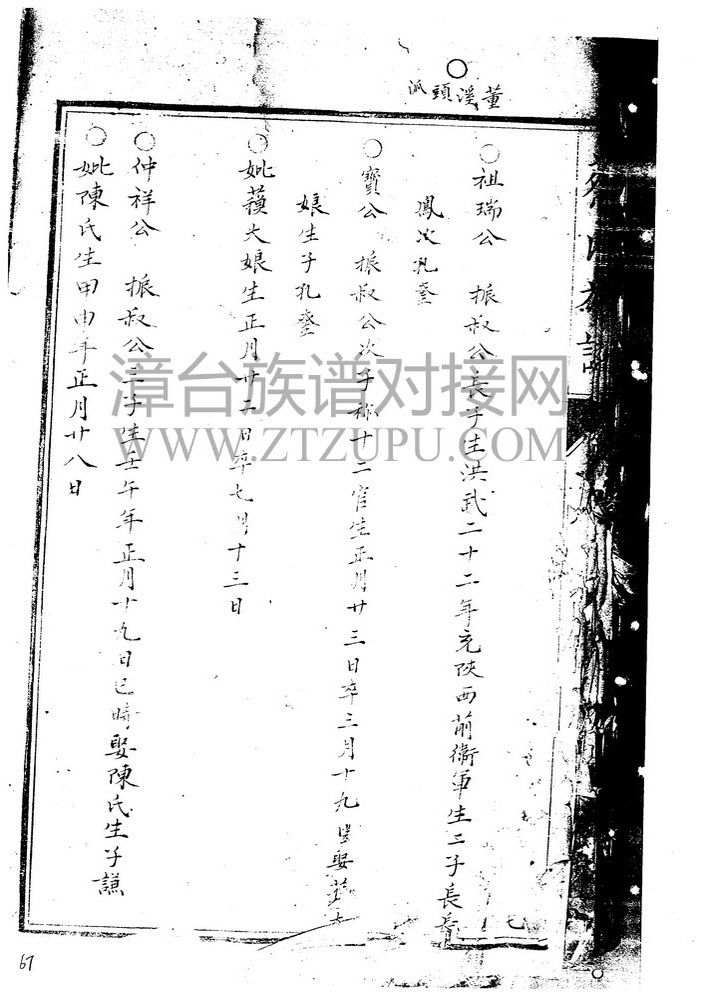 董溪頭派
祖瑞公 振叔公長子生洪武二十二年充陝西前衛軍生二子長
鳳次孔
寶公 振叔公次子称十二官生正月廿三日卒三月十九日娶
娘生子孔
妣蘓大娘生正月廿二日卒七月十三日
仲祥公 振叔公三子生壬午年正月十九日巳時娶陳氏生子謙
妣陳氏生甲申年正月廿八日
七
67
漳台族谱对接网
WWW.ZTZUPU.COM